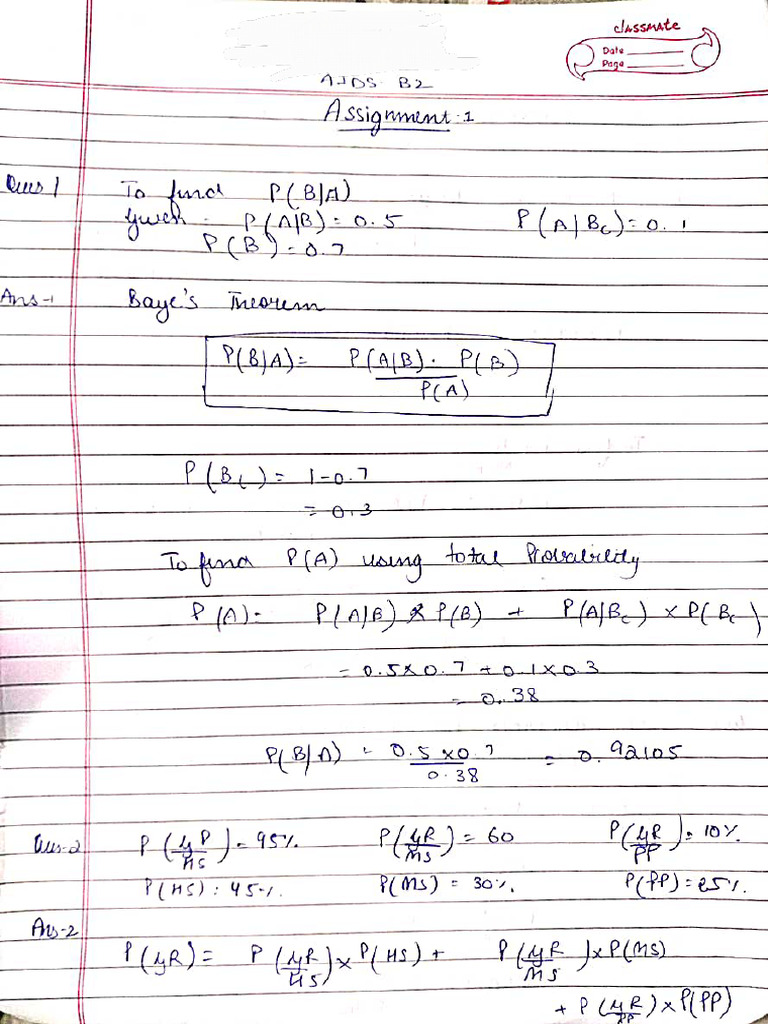 classmate
Date
Page
AIDS-B2
Assignment-1
Ques 1 To find P(B|A)
Given - P(A|B) = 0.5 P(A|Bc) = 0.1
P(B) = 0.7
Ans-1 Baye's Theorem
P(B|A) = P(A|B) · P(B)
P(A)
P(Bc) = 1-0.7
= 0.3
To find P(A) using total Probability
P(A) = P(A|B) × P(B) + P(A|Bc) × P(Bc)
= 0.5×0.7 + 0.1×0.3
= 0.38
P(B|A) = 0.5×0.7 = 0.92105
0.38
Ques-2 P(yP/HS) = 95% P(yR/MS) = 60 P(yR/PP) = 10%
P(HS) : 45% P(MS) = 30% P(PP) = 25%
Ans-2
P(yR) = P(yR/HS) × P(HS) + P(yR/MS) × P(MS)
+ P(yR/PP) × P(PP)